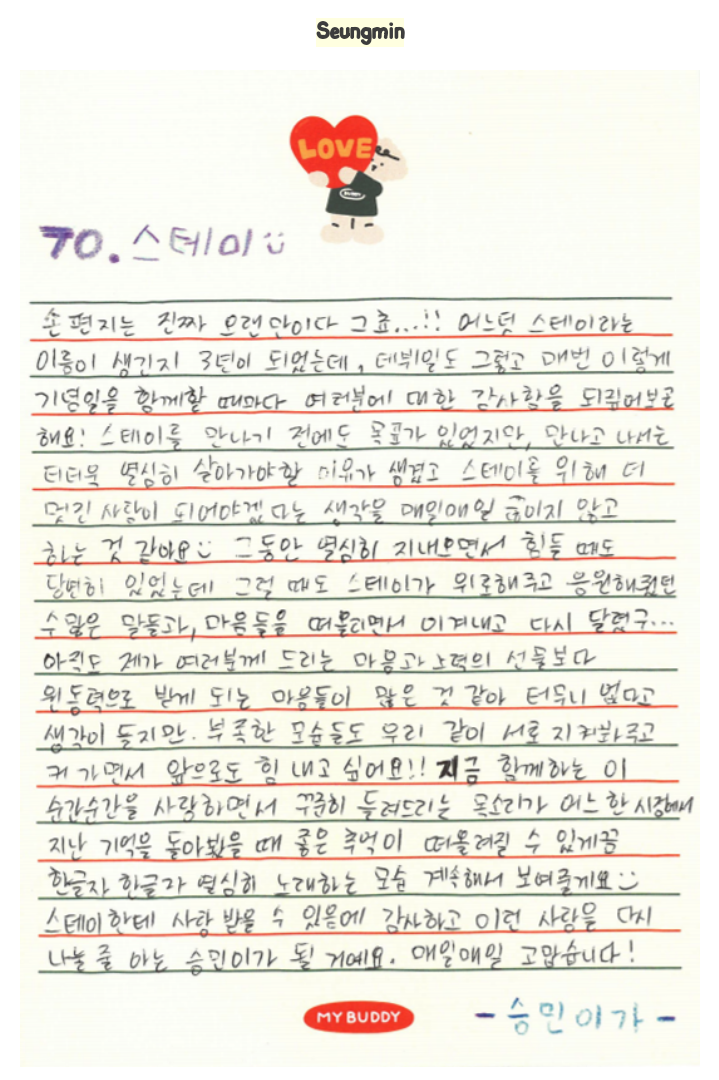 Seungmin
LOVE
BUDDY
70. 스테이
손 편지는 진짜 오랜만이다 그쵸...!! 어느덧 스테이라는
이름이 생긴지 3년이 되었는데, 데뷔일도 그렇고 매번 이렇게
기념일을 함께할 때마다 여러분에 대한 감사함을 되짚어보곤
해요! 스테이를 만나기 전에도 목표가 있었지만, 만나고 나서는
더더욱 열심히 살아가야할 이유가 생겼고 스테이를 위해 더
멋진 사람이 되어야겠다는 생각을 매일매일 끊이지 않고
하는 것 같아요 그동안 열심히 지내오면서 힘들 때도
당연히 있었는데 그럴 때도 스테이가 위로해주고 응원해줬던
수많은 말들과, 마음들을 떠올리면서 이겨내고 다시 달렸구...
아직도 제가 여러분께 드리는 마음과 노력의 선물보다
원동력으로 받게 되는 마음들이 많은 것 같아 터무니 없다고
생각이 들지만. 부족한 모습들도 우리 같이 서로 지켜봐주고
커 가면서 앞으로도 힘 내고 싶어요!! 지금 함께하는 이
순간순간을 사랑하면서 꾸준히 들려드리는 목소리가 어느 한 시점에서
지난 기억을 돌아봤을 때 좋은 추억이 떠올려질 수 있게끔
한글자 한글자 열심히 노래하는 모습 계속해서 보여줄게요
스테이한테 사랑 받을 수 있음에 감사하고 이런 사랑을 다시
나눌 줄 아는 승민이가 될 거예요. 매일매일 고맙습니다!
MY BUDDY
- 승민이가 -